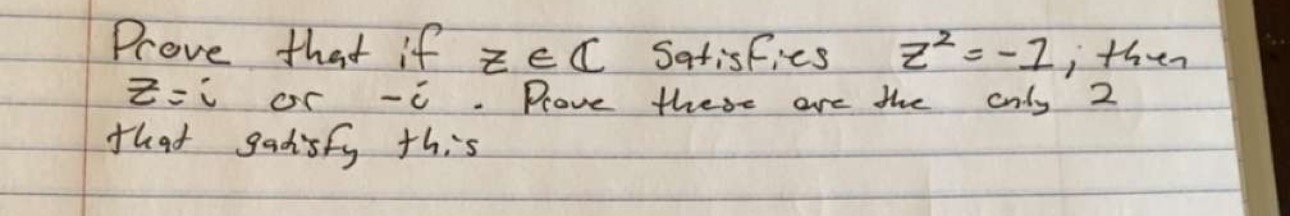 Prove that if z ∈ ℂ satisfies z² = -1, then
z = i or -i. Prove these are the only 2
that satisfy this